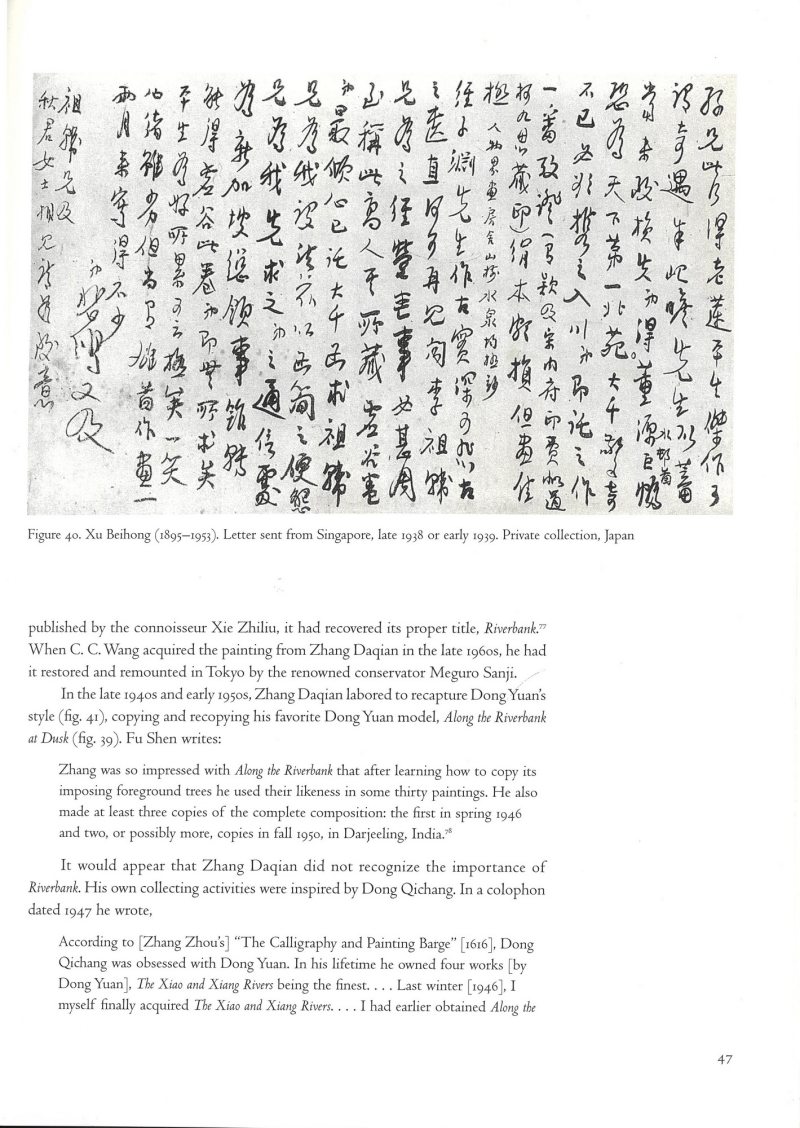 兄此行得老蓮平生傑作可
謂奇遇 先生所蓄
弟得董源巨幀
水村圖
恐為天下第一北苑。大千歎為奇
不已必欲攜之入川弟即託之作
一番致證有款及宋內府印賈似道
柯九思藏印絹本頗損但畫佳
極 人物界畫房舍山樹水泉均極妙
經子淵先生作古 古
之遺直何可再見聞李祖韓
兄為之經營喪事必甚周
至稱此高人其所藏虛谷卷
弟最傾心已託大千函求祖韓
兄為我設法 以函簡之便懇
兄為我先求之弟之通信處
為新加坡總領事館轉
能得虛谷此卷弟即無所求矣
平生為好所累可云極矣一笑
心緒雖劣但尚有雄圖作畫一
兩月來寫得不少
弟悲鴻又及
祖韓兄及
秋君女士相見請為致意
Figure 40. Xu Beihong (1895–1953). Letter sent from Singapore, late 1938 or early 1939. Private collection, Japan
published by the connoisseur Xie Zhiliu, it had recovered its proper title, Riverbank.77
When C. C. Wang acquired the painting from Zhang Daqian in the late 1960s, he had
it restored and remounted in Tokyo by the renowned conservator Meguro Sanji.
In the late 1940s and early 1950s, Zhang Daqian labored to recapture Dong Yuan's
style (fig. 41), copying and recopying his favorite Dong Yuan model, Along the Riverbank
at Dusk (fig. 39). Fu Shen writes:
Zhang was so impressed with Along the Riverbank that after learning how to copy its
imposing foreground trees he used their likeness in some thirty paintings. He also
made at least three copies of the complete composition: the first in spring 1946
and two, or possibly more, copies in fall 1950, in Darjeeling, India.78
It would appear that Zhang Daqian did not recognize the importance of
Riverbank. His own collecting activities were inspired by Dong Qichang. In a colophon
dated 1947 he wrote,
According to [Zhang Zhou's] “The Calligraphy and Painting Barge” [1616], Dong
Qichang was obsessed with Dong Yuan. In his lifetime he owned four works [by
Dong Yuan], The Xiao and Xiang Rivers being the finest. . . . Last winter [1946], I
myself finally acquired The Xiao and Xiang Rivers. . . . I had earlier obtained Along the
47